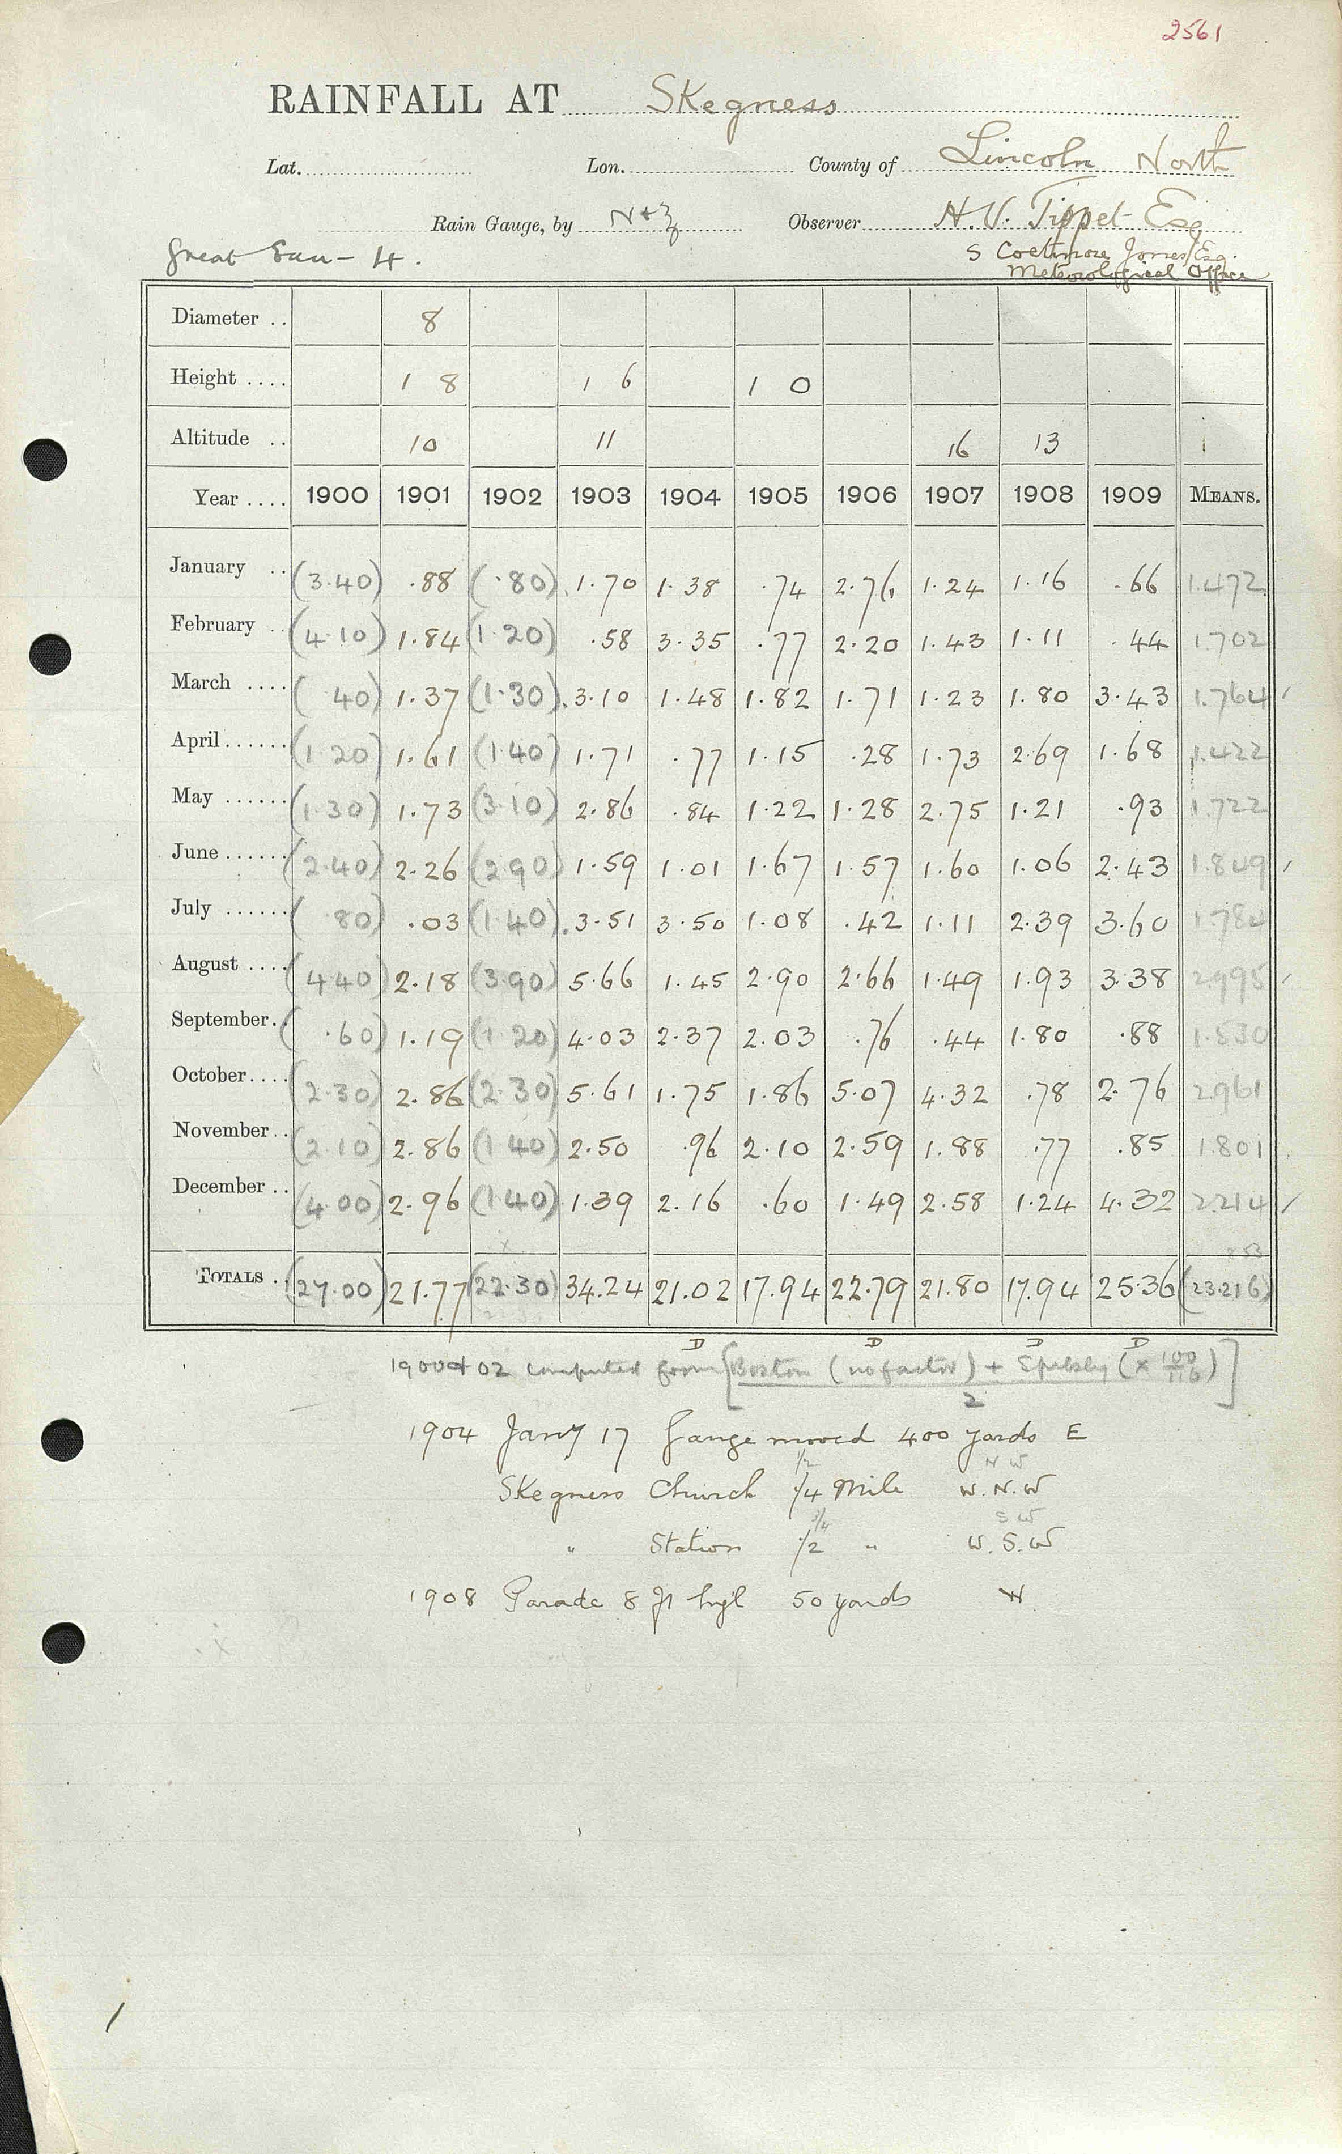 2561
RAINFALL AT Skegness
Lat. Lon. County of Lincoln North
Rain Gauge, by N+Z Observer H.V. Tippet Esq
Great Eau - 4. S Coetmore Jones Esq.
Meteorological Office
Diameter .. 8
Height .... 1 8 1 6 1 0
Altitude .. 10 11 16 13
Year .... 1900 1901 1902 1903 1904 1905 1906 1907 1908 1909 MEANS.
January .. (3.40) .88 (.80) 1.70 1.38 .74 2.76 1.24 1.16 .66 1.472
February .. (4.10) 1.84 (1.20) .58 3.35 .77 2.20 1.43 1.11 .44 1.702
March .... ( 40) 1.37 (1.30) 3.10 1.48 1.82 1.71 1.23 1.80 3.43 1.764 /
April ...... (1 20) 1.61 (1.40) 1.71 .77 1.15 .28 1.73 2.69 1.68 1.422
May ...... (1.30) 1.73 (3 10) 2.86 .84 1.22 1.28 2.75 1.21 .93 1.722
June ...... (2.40) 2.26 (2 90) 1.59 1.01 1.67 1.57 1.60 1.06 2.43 1.849 /
July ...... ( 80) .03 (1 40) 3.51 3.50 1.08 .42 1.11 2.39 3.60 1.784
August .... (4 40) 2.18 (3.90) 5.66 1.45 2.90 2.66 1.49 1.93 3.38 2.995 /
September.. ( .60) 1.19 (1 20) 4.03 2.37 2.03 .76 .44 1.80 .88 1.530
October.... (2.30) 2.86 (2.30) 5.61 1.75 1.86 5.07 4.32 .78 2.76 2.961
November.. (2.10) 2.86 (1 40) 2.50 .96 2.10 2.59 1.88 .77 .85 1.801
December .. (4.00) 2.96 (1 40) 1.39 2.16 .60 1.49 2.58 1.24 4.32 2.214 /
TOTALS .. (27.00) 21.77 (22.30) 34.24 21.02 17.94 22.79 21.80 17.94 25.36 (23.216)
D D D D
1900 & 02 computed from [Boston (no factor) + Spilsby (× 100/116)]
2
1904 Jany 17 Gauge moved 400 yards E
1/2 N W
Skegness Church 1/4 Mile W.N.W
3/4 S W
" Station 1/2 " W.S.W
1908 Parade 8 ft high 50 yards W